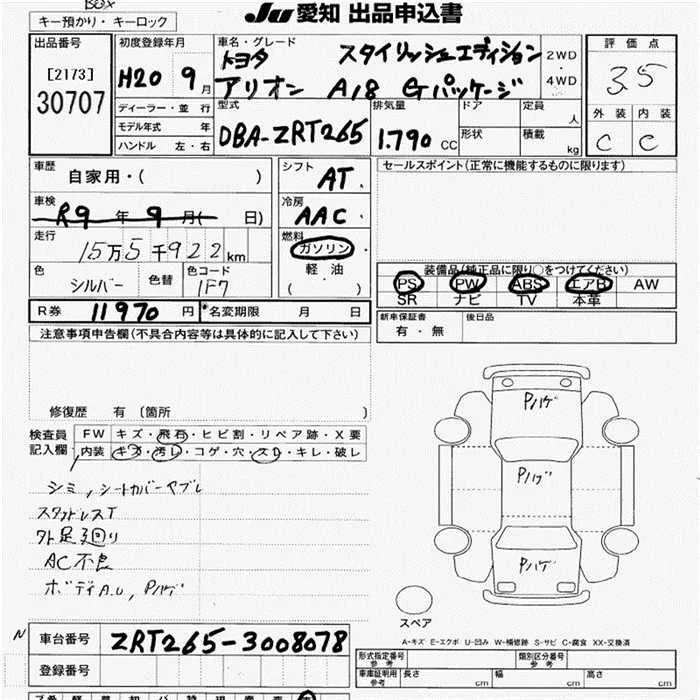 BOX
キー預かり・キーロック
JU 愛知 出品申込書
出品番号
[2173]
30707
初度登録年月
H20 9月
ディーラー・並行
モデル年式 年
ハンドル 左・右
車名・グレード
トヨタ スタイリッシュエディション
アリオン A18 Gパッケージ
2WD
4WD
型式
DBA-ZRT265
排気量
1.790 CC
ドア
形状
定員 人
積載 kg
評価点
3.5
外装 内装
C C
車歴
自家用・( )
車検
R9 年 9 月( 日)
走行
15万5千922km
色
シルバー
色替
色コード
1F7
シフト
AT
冷房
AAC
燃料
ガソリン・
軽油
( )
セールスポイント(正常に機能するものに限ります)
装備品(純正品に限り○をつけてください)
PS PW ABS エアB AW
SR ナビ TV 本革
R券 11970 円 *名変期限 月 日
新車保証書
有・無
後日品
注意事項申告欄(不具合内容等は具体的に記入して下さい)
修復歴 有 〔箇所 〕
検査員
記入欄
FW キズ・飛石・ヒビ割・リペア跡・X要
内装 キズ・汚レ・コゲ・穴・スレ・キレ・破レ
シミ, シートカバーヤブレ
スタットレスT
外足廻り
AC不良
ボディA.U, Pハゲ
Pハゲ
Pハゲ
Pハゲ
スペア
A-キズ E-エクボ U-凹み W-補修跡 S-サビ C-腐食 XX-交換済
N
車台番号 ZRT265-3008078
登録番号
形式指定番号
参考
類別区分番号
参考
車庫証明用
参考
長さ cm 幅 cm 高さ cm